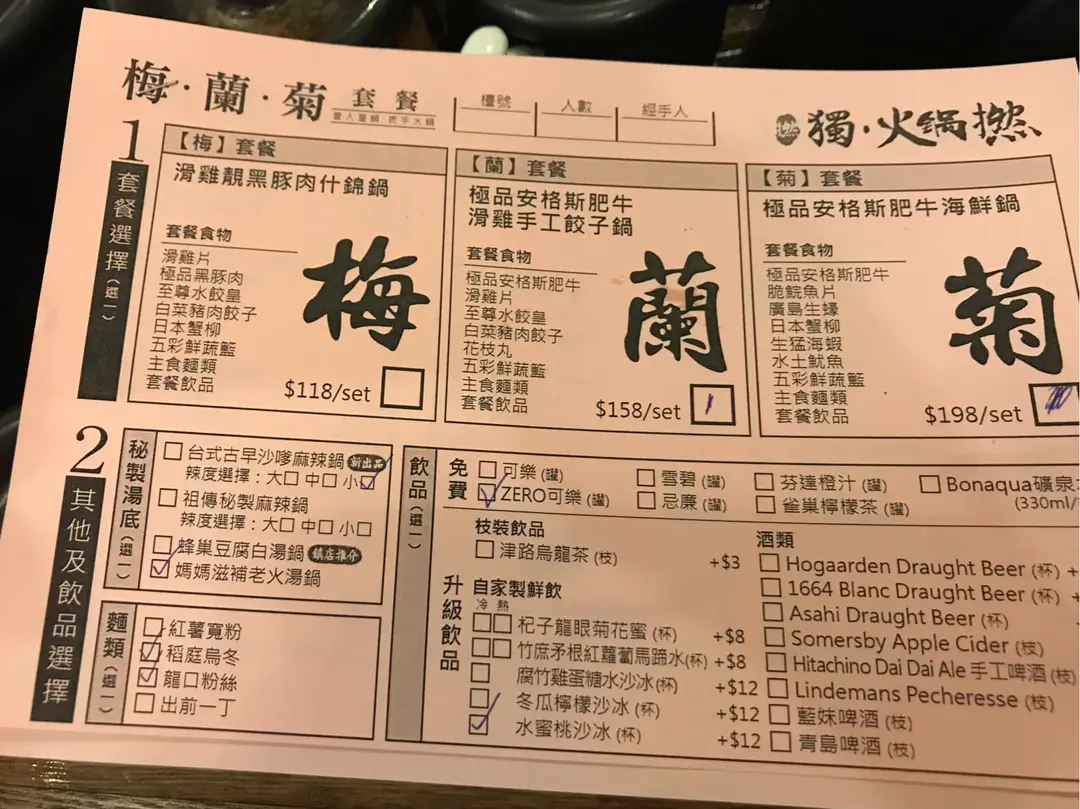 梅·蘭·菊 套餐
檯號 人數 經手人
獨·火鍋撚
1
套餐選擇（選一）
【梅】套餐
滑雞靚黑豚肉什錦鍋
套餐食物
滑雞片
極品黑豚肉
至尊水餃皇
白菜豬肉餃子
日本蟹柳
五彩鮮蔬籃
主食麵類
套餐飲品
梅
$118/set
【蘭】套餐
極品安格斯肥牛
滑雞手工餃子鍋
套餐食物
極品安格斯肥牛
滑雞片
至尊水餃皇
白菜豬肉餃子
花枝丸
五彩鮮蔬籃
主食麵類
套餐飲品
蘭
$158/set
【菊】套餐
極品安格斯肥牛海鮮鍋
套餐食物
極品安格斯肥牛
脆鯇魚片
廣島生蠔
日本蟹柳
生猛海蝦
水土魷魚
五彩鮮蔬籃
主食麵類
套餐飲品
菊
$198/set
2
其他及飲品選擇
秘製湯底（選一）
台式古早沙嗲麻辣鍋 新出品
辣度選擇：大 中 小
祖傳秘製麻辣鍋
辣度選擇：大 中 小
蜂巢豆腐白湯鍋 鎮店推介
媽媽滋補老火湯鍋
麵類（選一）
紅薯寬粉
稻庭烏冬
龍口粉絲
出前一丁
飲品（選一）
免費
可樂 (罐) 雪碧 (罐) 芬達橙汁 (罐) Bonaqua礦泉
ZERO可樂 (罐) 忌廉 (罐) 雀巢檸檬茶 (罐) (330ml/
升級飲品
枝裝飲品
津路烏龍茶 (枝) +$3
自家製鮮飲
冷 熱
杞子龍眼菊花蜜 (杯) +$8
竹庶矛根紅蘿蔔馬蹄水(杯) +$8
腐竹雞蛋糖水沙冰(杯) +$12
冬瓜檸檬沙冰 (杯) +$12
水蜜桃沙冰 (杯) +$12
酒類
Hogaarden Draught Beer (杯) +
1664 Blanc Draught Beer (杯) +
Asahi Draught Beer (杯)
Somersby Apple Cider (枝)
Hitachino Dai Dai Ale 手工啤酒 (枝)
Lindemans Pecheresse (枝)
藍妹啤酒 (枝)
青島啤酒 (枝)